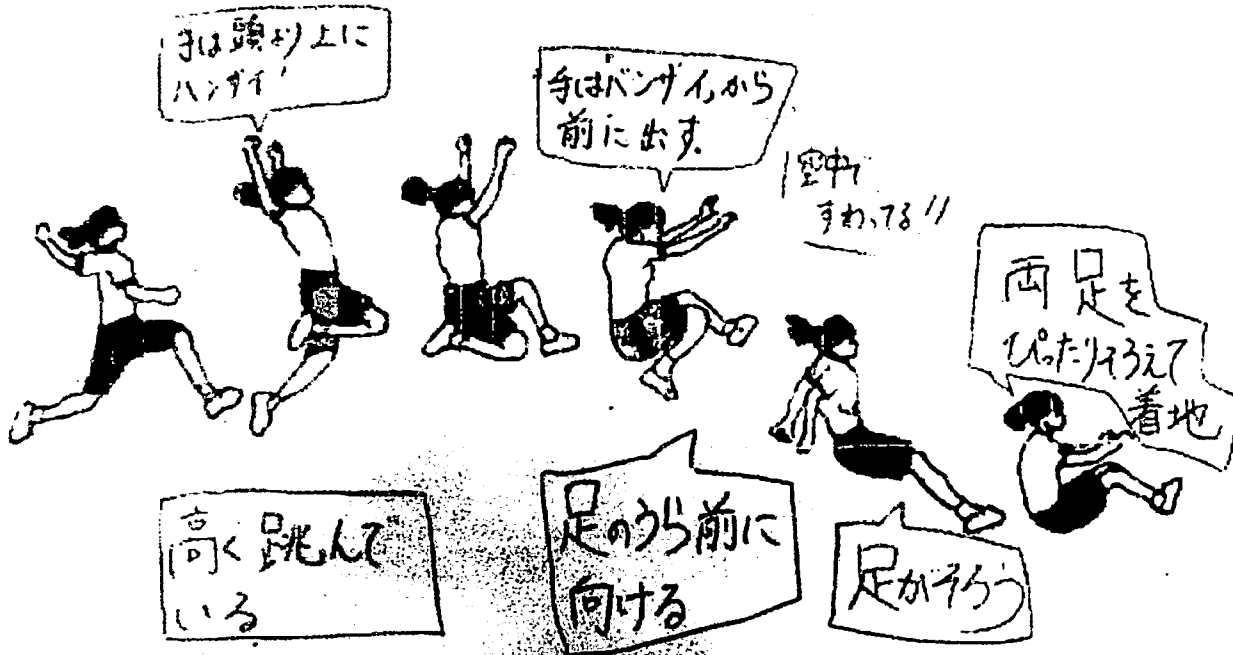 手は頭より上に
バンザイ!
手は「バンザイ」から
前に出す。
空中で
すわってる!!
両足を
ぴったりそろえて
着地
高く跳んで
いる
足のうら前に
向ける
足がそろう